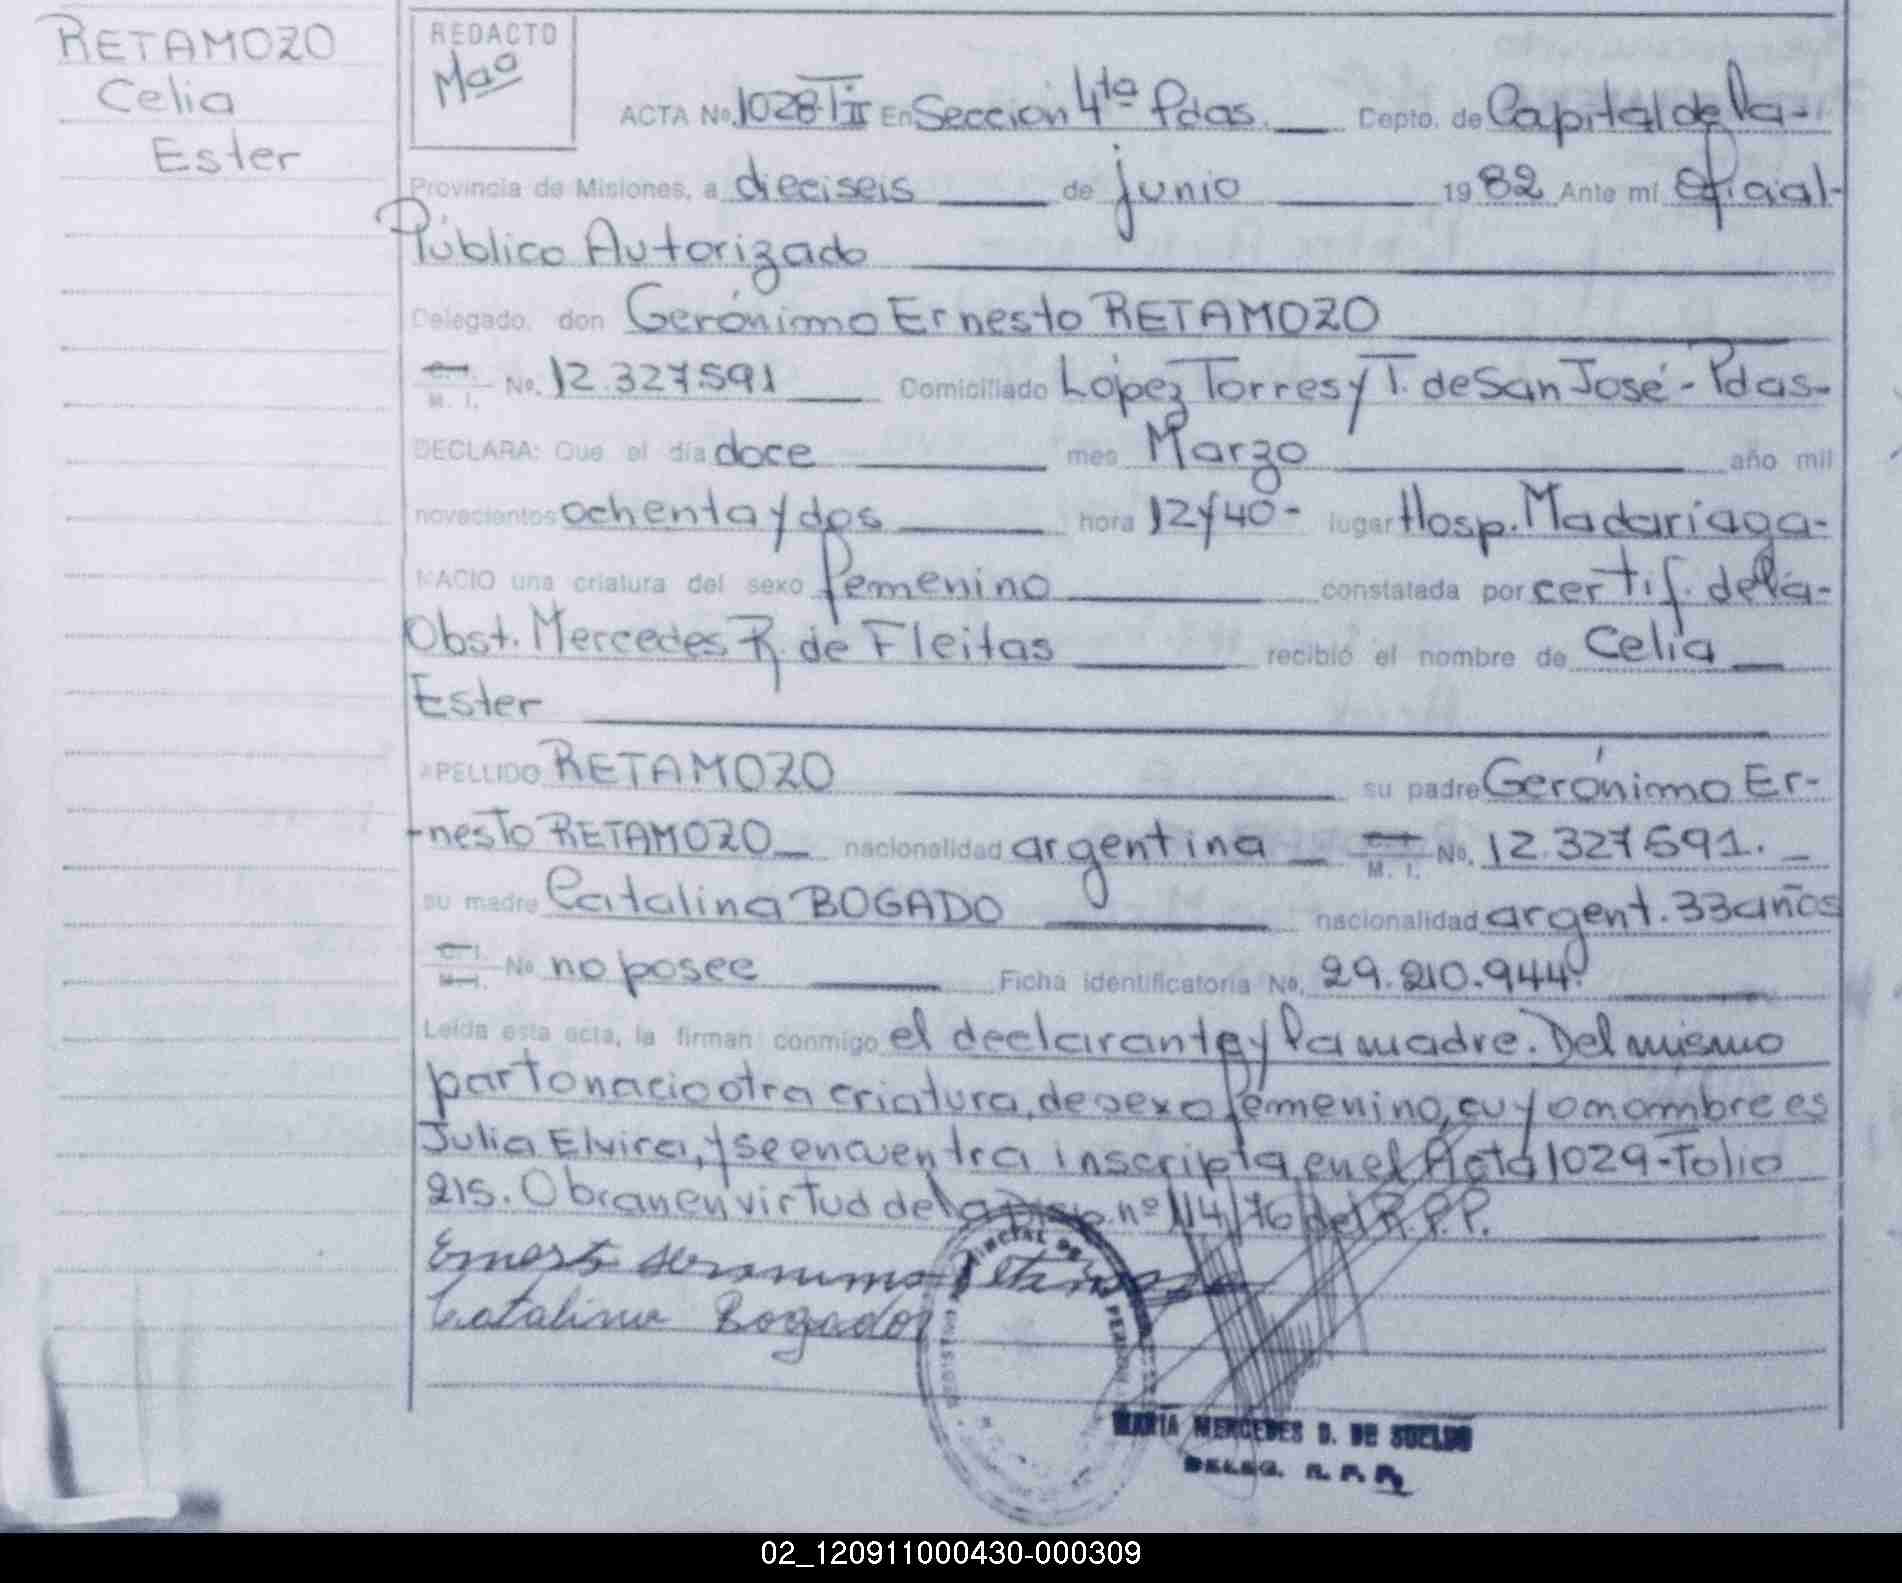 RETAMOZO
Celia
Ester
REDACTO
ACTA No. 1028-T II En Seccion 4ta Pdas. Depto. de Capital de la-
Provincia de Misiones, a dieciseis de junio 1982 Ante mí Oficial-
Público Autorizado
Delegado, don Gerónimo Ernesto RETAMOZO
C. I. M. I. No. 12.327.591 Domiciliado López Torres y T. de San José - Pdas-
DECLARA: Que el día doce mes Marzo año mil
novecientos ochenta y dos hora 12y40- lugar Hosp. Madariaga-
NACIO una criatura del sexo femenino constatada por certif. de la-
Obst. Mercedes R. de Fleitas recibió el nombre de Celia
Ester
APELLIDO RETAMOZO su padre Gerónimo Er-
-nesto RETAMOZO nacionalidad argentina C. I. M. I. No. 12.327.591.
su madre Catalina BOGADO nacionalidad argent. 33 años
C. I. M. I. No no posee Ficha identificatoria No. 29.210.944.
Leída esta acta, la firman conmigo el declarante y la madre. Del mismo
parto nacio otra criatura, de sexo femenino, cuyo nombre es
Julia Elvira, y se encuentra inscripta en el Acta 1029-Folio
215. Obran en virtud de la Disp. nº 114/76 del R.P.P.
Ernesto Geronimo Retamozo
Catalina Bogado
MARÍA MERCEDES D. DE SUELDO
DELEG. R. P. P.
02_120911000430-000309